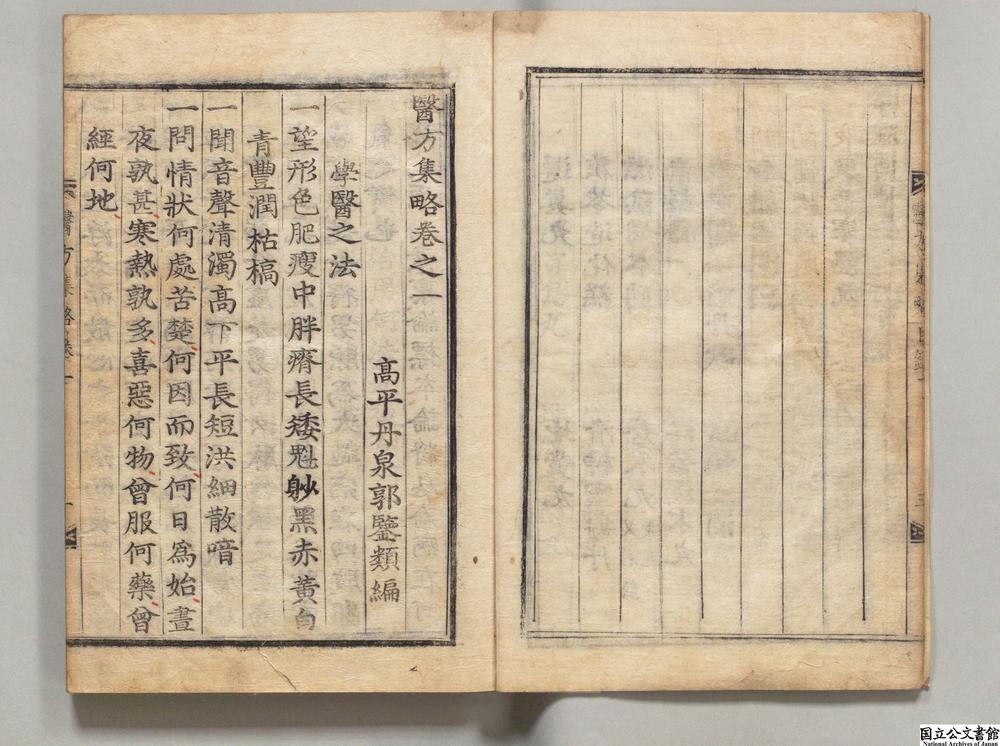 醫方集略卷之一
高平丹泉郭鑒類編
學醫之法
一望形色肥瘦中胖瘠長矮魁眇黑赤黃白
青豐潤枯槁
一聞音聲清濁高下平長短洪細散喑
一問情狀何處苦楚何因而致何日爲始晝
夜孰甚寒熱孰多喜惡何物曾服何藥曾
經何地
醫方集略卷一
一
三
国立公文書館
National Archives of Japan